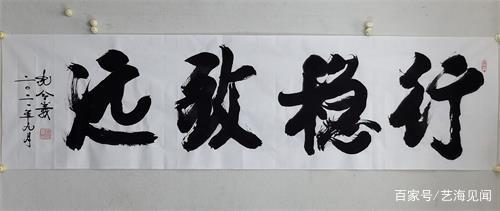 行稳致远
二〇二一年九月
百家号/艺海见闻